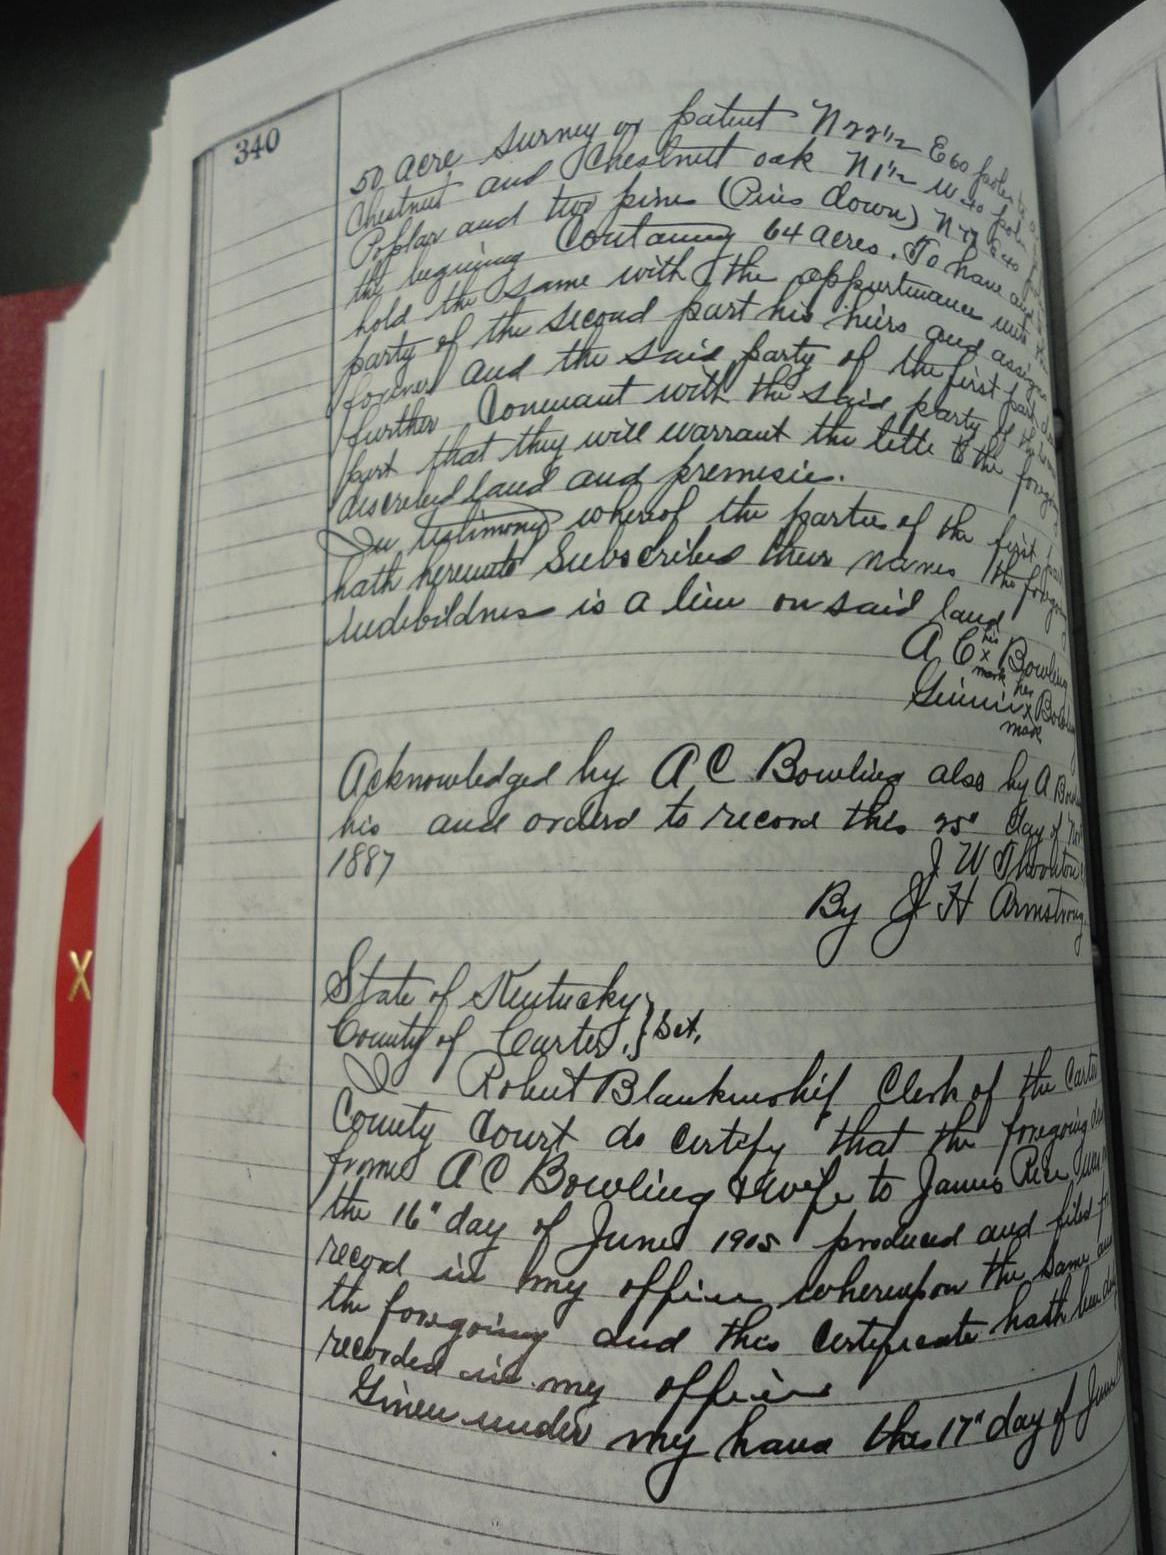 340
50 acre survey or patent N 22 1/2 E 60 poles to a
Chestnut and Chestnut oak N 1 1/2 W 40 poles
Poplar and two pines (Pines down) N 47 E 40
the begining Containing 64 acres. To have and
hold the same with the appurtinances unto the
party of the second part his heirs and assigns
forever and the said party of the first part do
further Convenant with the said party of the second
part that they will warrant the title to the foregoing
discribed land and premises.
In testimony whereof the parties of the first part
hath hereunto Subscribed their names the foregoing
indebildness is a lien on said land
A C his x mark Bowling
her x mark
Acknowledged by A C Bowling also by A
his and orderd to record this 25" day of Nov
1887
J W Thornton
By J H Armstrong
State of Kentucky
County of Carter } Sct.
I Robert Blankinship Clerk of the Carter
County Court do certify that the foregoing deed
from A C Bowling & wife to James Rice was
the 16" day of June 1905 produced and filed for
record in my office whereupon the same and
the foregoing and this certificate hath been duly
recorded in my office
Given under my hand this 17" day of June
X